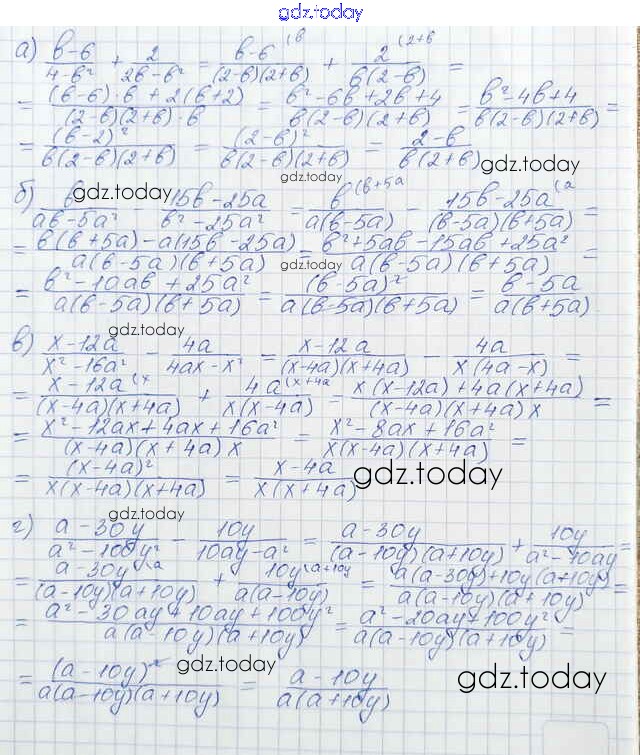 gdz.today
а) (в-6)/(4-в²) + 2/(2в-в²) = (в-6 (в)/((2-в)(2+в)) + (2 (2+в)/(в(2-в)) =
= ((в-6)·в+2(в+2))/((2-в)(2+в)·в) = (в²-6в+2в+4)/(в(2-в)(2+в)) = (в²-4в+4)/(в(2-в)(2+в)) =
= (в-2)²/(в(2-в)(2+в)) = (2-в)²/(в(2-в)(2+в)) = (2-в)/(в(2+в)) gdz.today
б) в/(aв-5a²) - (15в-25a)/(в²-25a²) = (в (в+5a)/(a(в-5a)) - (15в-25a (a)/((в-5a)(в+5a)) =
gdz.today gdz.today
= (в(в+5a)-a(15в-25a))/(a(в-5a)(в+5a)) = (в²+5aв-15aв+25a²)/(a(в-5a)(в+5a)) =
gdz.today
= (в²-10aв+25a²)/(a(в-5a)(в+5a)) = (в-5a)²/(a(в-5a)(в+5a)) = (в-5a)/(a(в+5a)).
gdz.today
в) (x-12a)/(x²-16a²) - 4a/(4ax-x²) = (x-12a)/((x-4a)(x+4a)) - 4a/(x(4a-x)) =
= (x-12a (x)/((x-4a)(x+4a)) + (4a (x+4a)/(x(x-4a)) = (x(x-12a)+4a(x+4a))/((x-4a)(x+4a)x) =
= (x²-12ax+4ax+16a²)/((x-4a)(x+4a)x) = (x²-8ax+16a²)/(x(x-4a)(x+4a)) =
= (x-4a)²/(x(x-4a)(x+4a)) = (x-4a)/(x(x+4a)) gdz.today
gdz.today
г) (a-30y)/(a²-100y²) - 10y/(10ay-a²) = (a-30y)/((a-10y)(a+10y)) + 10y/(a²-10ay) =
= (a-30y (a)/((a-10y)(a+10y)) + (10y (a+10y)/(a(a-10y)) = (a(a-30y)+10y(a+10y))/(a(a-10y)(a+10y)) =
= (a²-30ay+10ay+100y²)/(a(a-10y)(a+10y)) = (a²-20ay+100y²)/(a(a-10y)(a+10y)) =
gdz.today
= (a-10y)²/(a(a-10y)(a+10y)) = (a-10y)/(a(a+10y)) gdz.today